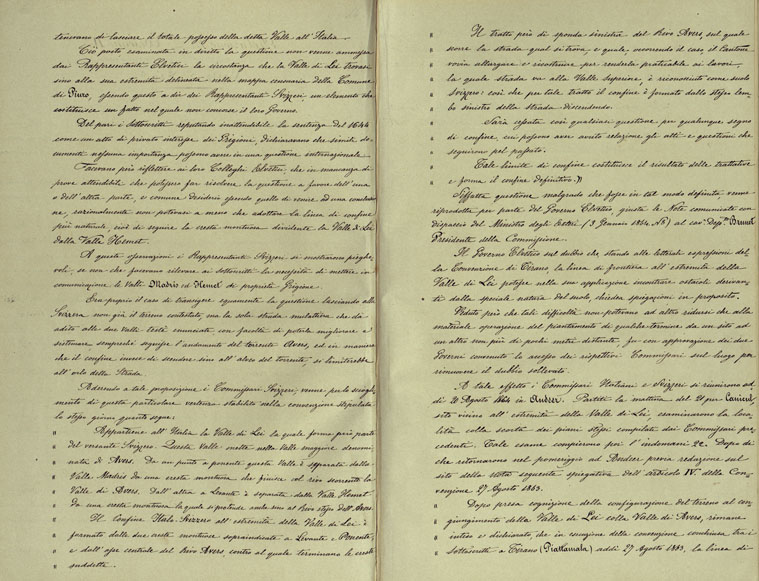 tenevano de lasciare il totale possesso della detta Valle all'Italia.
Ciò posto esaminata in diretto la questione non venne ammessa
dai Rappresentanti Elvetici la circostanza che la Valle di Lei trovasi
sino alla sua estremità delineata nella mappa censuaria della Comune
di Piuro, essendo questo a dir dei Rappresentanti Svizzeri, un elemento che
costituisce un fatto nel quale non convenne il loro Governo.
Del pari i Sottoscritti reputando inattendibile la sentenza del 1644
come un atto di privato interesse dei Grigioni dichiararono che simile do-
cumento nessuna importanza possono avere in una questione internazionale.
Facevano però riflettere ai loro Colleghi Elvetici, che in mancanza di
prove attendibili che potessero far risolvere la questione a favore dell'una
o dell'altra parte, e comune desiderio essendo quello di venire ad una conclusio-
ne, razionalmente non potevasi a meno che adottare la linea di confine
più naturale, cioè di seguire la cresta montuosa dividente la Valle di Lei
dalla Valle Hemet.
A queste osservazioni i Rappresentanti Svizzeri si mostrarono pieghe-
voli, se non che facevano rilevare ai sottoscritti la necessità di mettere in
comunicazione le Valli Madris ed Hemet di proprietà Grigione.
Era proprio il caso di transigere equamente la questione lasciando alla
Svizzera non già il terreno contestato, ma la sola strada mulattiera che dà
adito alle due Valli testè enunciate con facoltà di poterla migliorare e
sistemare semprechè segnasse l'andamento del torrente Avers, ed in maniera
che il confine invece di scendere sino all'alveo del torrente, si limiterebbe
all'orlo della Strada.
Aderendo a tale proposizione i Commissari Svizzeri, venne, per lo sciogli-
mento di questa particolare vertenza stabilito nella convenzione stipulata
lo stesso giorno quanto segue.
" Appartiene all'Italia la Valle di Lei la quale forma però parte
" del versante Svizzero. Questa Valle mette nella Valle maggiore denomi-
" nata di Avers. Da un punto a ponente questa Valle è separata dalla
" Valle Madris da una cresta montuosa che finisce col rivo scorrente la
" Valle di Avers. Dall'altra a Levante è separata dalla Valle Hemet
" da una cresta montuosa la quale si protende anche sino al Rivo stesso dell'Avers.
" Il Confine Italo Svizzero all'estremità della Valle di Lei è
" formato dalle due creste montuose sopraindicate a Levante e Ponente,
" e dall'asse centrale del Rivo Avers, contro al quale terminano le creste
" suddette.
" Il tratto però di sponda sinistra del Rivo Avers, sul quale
" scorre la strada qual si trova, e quale, occorrendo il caso, il Cantone
" vorrà allargare e ricostruire per renderla praticabile ai lavori,
" la quale strada va alla Valle Superiore, è riconosciuto come suolo
" Svizzero: così che per tale tratto il confine è formato dallo stesso lem-
" bo sinistro della strada discendendo.
" Sarà cessata così qualsiasi questione per qualunque segno
" di confine, cui possono aver avuto relazione gli atti e questioni che
" seguirono pel passato.
" Tale limite di confine costituisce il risultato delle trattative
" e forma il confine definitivo. "
Siffatta questione, malgrado che fosse in tal modo definita venne
riprodotta per parte del Governo Elvetico, giusta la Nota comunicata con
dispaccio del Ministro degli Esteri (3 Gennaio 1864 N.) al cav. Depo. Brunet
Presidente della Commissione.
Il Governo Elvetico sul dubbio che, stando alle letterali espressioni del-
la Convenzione di Tirano la linea di frontiera all'estremità della
Valle di Lei potesse nella sua applicazione incontrare ostacoli derivan-
ti dalla speciale natura del suolo chiedeva spiegazioni in proposito.
Veduto però che tale difficoltà non potevano ad altro ridursi che alla
materiale operazione del piantamento di qualche termine da un sito ad
un altro non più di pochi metri distante, fu con approvazione dei due
Governi convenuto l'accesso dei rispettivi Commissari sul luogo per
rimuovere il dubbio sollevato.
A tale effetto i Commissari Italiani e Svizzeri si riunirono ad-
dì 20 Agosto 1864 in Andeer. Partiti la mattina del 21 per Canicul,
sito vicino all'estremità della Valle di Lei, esaminarono la loca-
lità colla scorta dei piani stessi compilati dai Commissari pre-
cedenti. Tale esame compirono poi l'indomani 22. Dopo di
che ritornarono nel pomeriggio ad Andeer previa redazione sul
sito della nota seguente spiegativa dell'articolo IV. della Con-
venzione 27 Agosto 1863.
" Dopo presa cognizione della configurazione del terreno al con-
" giungimento della Valle di Lei colla Valle di Avers, rimane
" inteso e dichiarato, che in consequenza della convenzione conchiusa tra i
" sottoscritti a Tirano (Piattamala) addì 27 Agosto 1863, la linea di